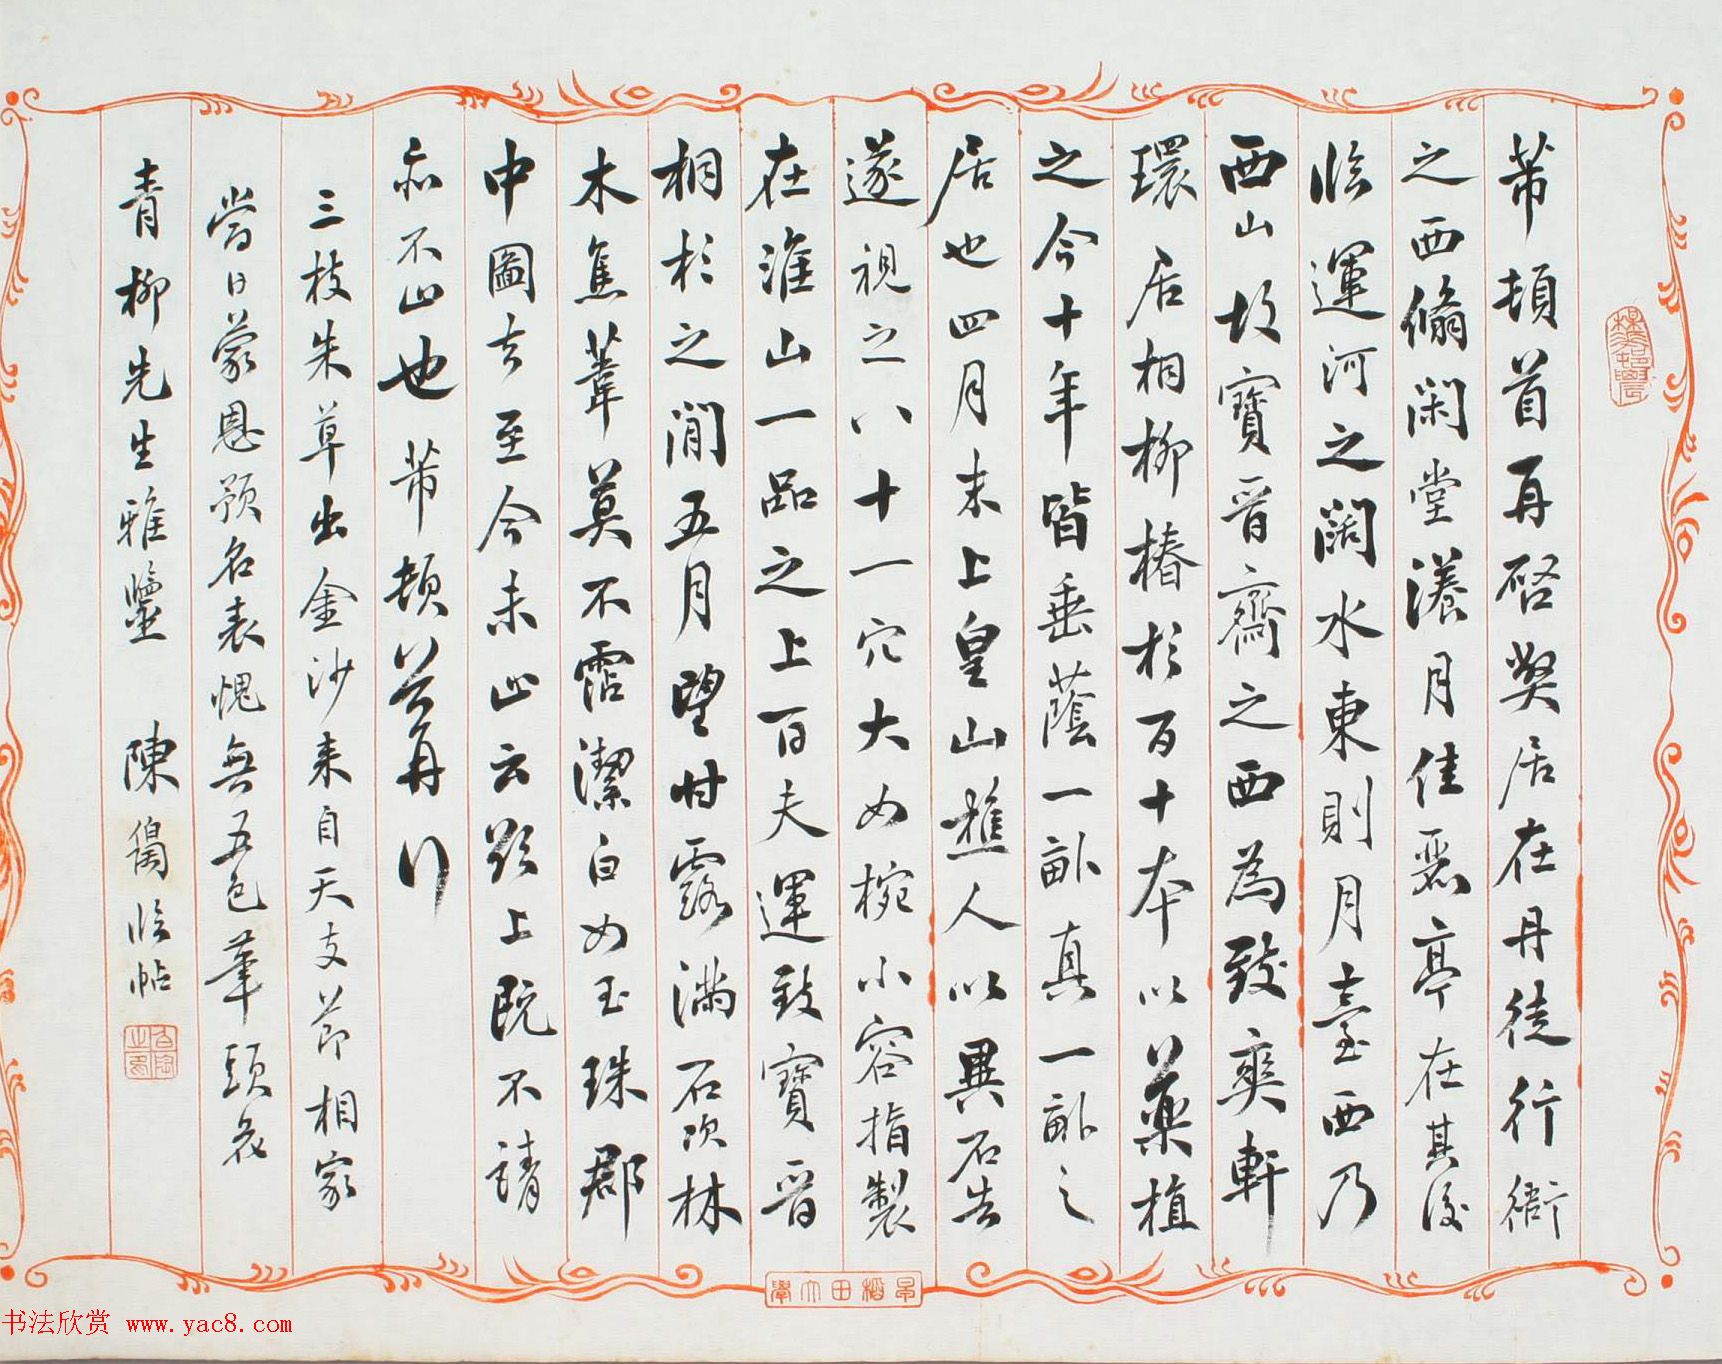 芾頓首再啓弊居在丹徒行衙
之西翛閑堂漾月佳麗亭在其後
臨運河之闊水東則月臺西乃
西山故寶晉齋之西為致爽軒
環居桐柳椿杉百十本以藥植
之今十年皆垂蔭一畝真一畝之
居也四月末上皇山樵人以異石告
遂視之八十一穴大如椀小容指製
在淮山一品之上百夫運致寶晉
桐杉之間五月望甘露滿石次林
木焦葦莫不霑潔白如玉珠郡
中圖去至今未止云欲上既不請
亦不止也芾頓首再行
三枝朱草出金沙来自天支節相家
當日蒙恩預名表愧無五色筆頭花
青柳先生雅鑒 陳 臨帖
早稻田大學
书法欣赏 www.yac8.com